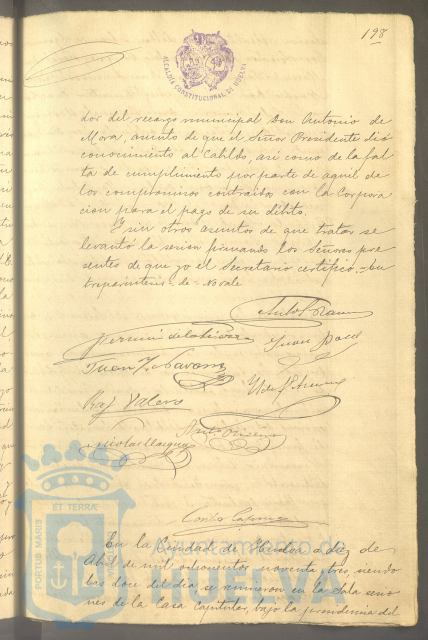 198
ALCALDIA CONSTITUCIONAL DE HUELVA
dor del recargo municipal Don Antonio de
Mora, asunto de que el Señor Presidente dió
conocimiento al Cabildo, asi como de la fal
ta de cumplimiento por parte de aquel de
los compromisos contraidos con la Corpora
cion para el pago de su débito.
Y sin otros asuntos de que tratar se
levantó la sesion firmando los Señores pre
sentes de que yo el Secretario certifico.=En
treparentesis=de=No vale
Juan
Rafl Valero
Nicolas
En la Ciudad de Huelva a diez de
Abril de mil ochocientos noventa y tres, siendo
las doce del dia se reunieron en la Sala sesio
nes de la Casa Capitular, bajo la presidencia del
PORTUS MARIS ET TERRAE
Ayuntamiento de
HUELVA